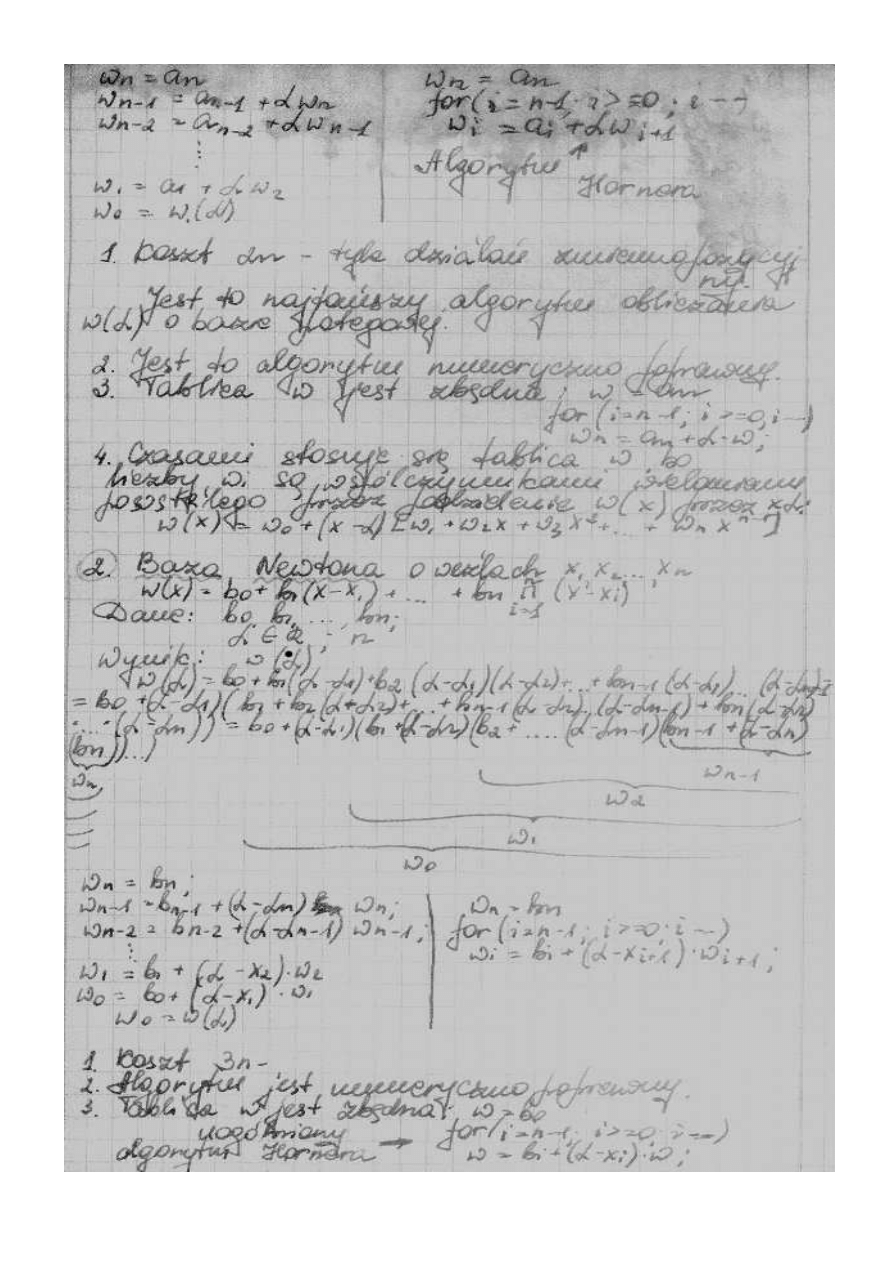 wn = an
wn-1 = an-1 + αwn
wn-2 = an-2 + αwn-1
⋮
w1 = a1 + αw2
w0 = w(α)
wn = an
for(i=n-1; i>=0; i--)
wi = ai + αwi+1
Algorytm ↑
Hornera
1. Koszt 2n - tyle działań zmiennopozycyj
nych.
Jest to najtańszy algorytm obliczania
w(α) o bazie potęgowej.
2. Jest to algorytm numerycznie poprawny.
3. Tablica w jest zbędna: w = an
for (i=n-1; i>=0; i--)
wn = an + α·w;
4. Czasami stosuje się tablica w bo
liczby wi są współczynnikami wielomianu
pozostałego przez podzielenie w(x) przez x-α:
w(x) = w0 + (x-α)[w1 + w2x + w3x² + ... + wn xⁿ⁻¹]
2. Baza Newtona o węzłach x1, x2, ..., xn
w(x) = b0 + b1(x-x1) + ... + bn ∏ i=1 n (x-xi)
Dane: b0, b1, ..., bn;
α ∈ R ; n
Wynik: w(α)
w(α) = b0 + b1(α-α1) + b2(α-α1)(α-α2) + ... + bn-1(α-α1)...(α-αn)=
= b0 + (α-α1)(b1 + b2(α+α2) + ... + bn-1(α-α2)..(α-αn-1) + bn(α-α2)
...(α-αn)) = b0 + (α-α1)(b1 + (α-α2)(b2 + .... (α-αn-1)(bn-1 + (α-αn)
(bn))...)
wn
wn-1
w2
w1
w0
wn = bn;
wn-1 = bn-1 + (α-αn) wn;
wn-2 = bn-2 + (α-αn-1) wn-1;
⋮
w1 = b1 + (α-x2)·w2
w0 = b0 + (α-x1)·w1
w0 = w(α)
wn = bn
for(i=n-1; i>=0; i--)
wi = bi + (α-xi+1)·wi+1;
1. Koszt 3n-
2. Algorytm jest numerycznie poprawny.
3. Tablica w jest zbędna: w = b0
uogólniony
algorytm Hornera →
for(i=n-1; i>=0; i--)
w = bi + (α-xi)·w;